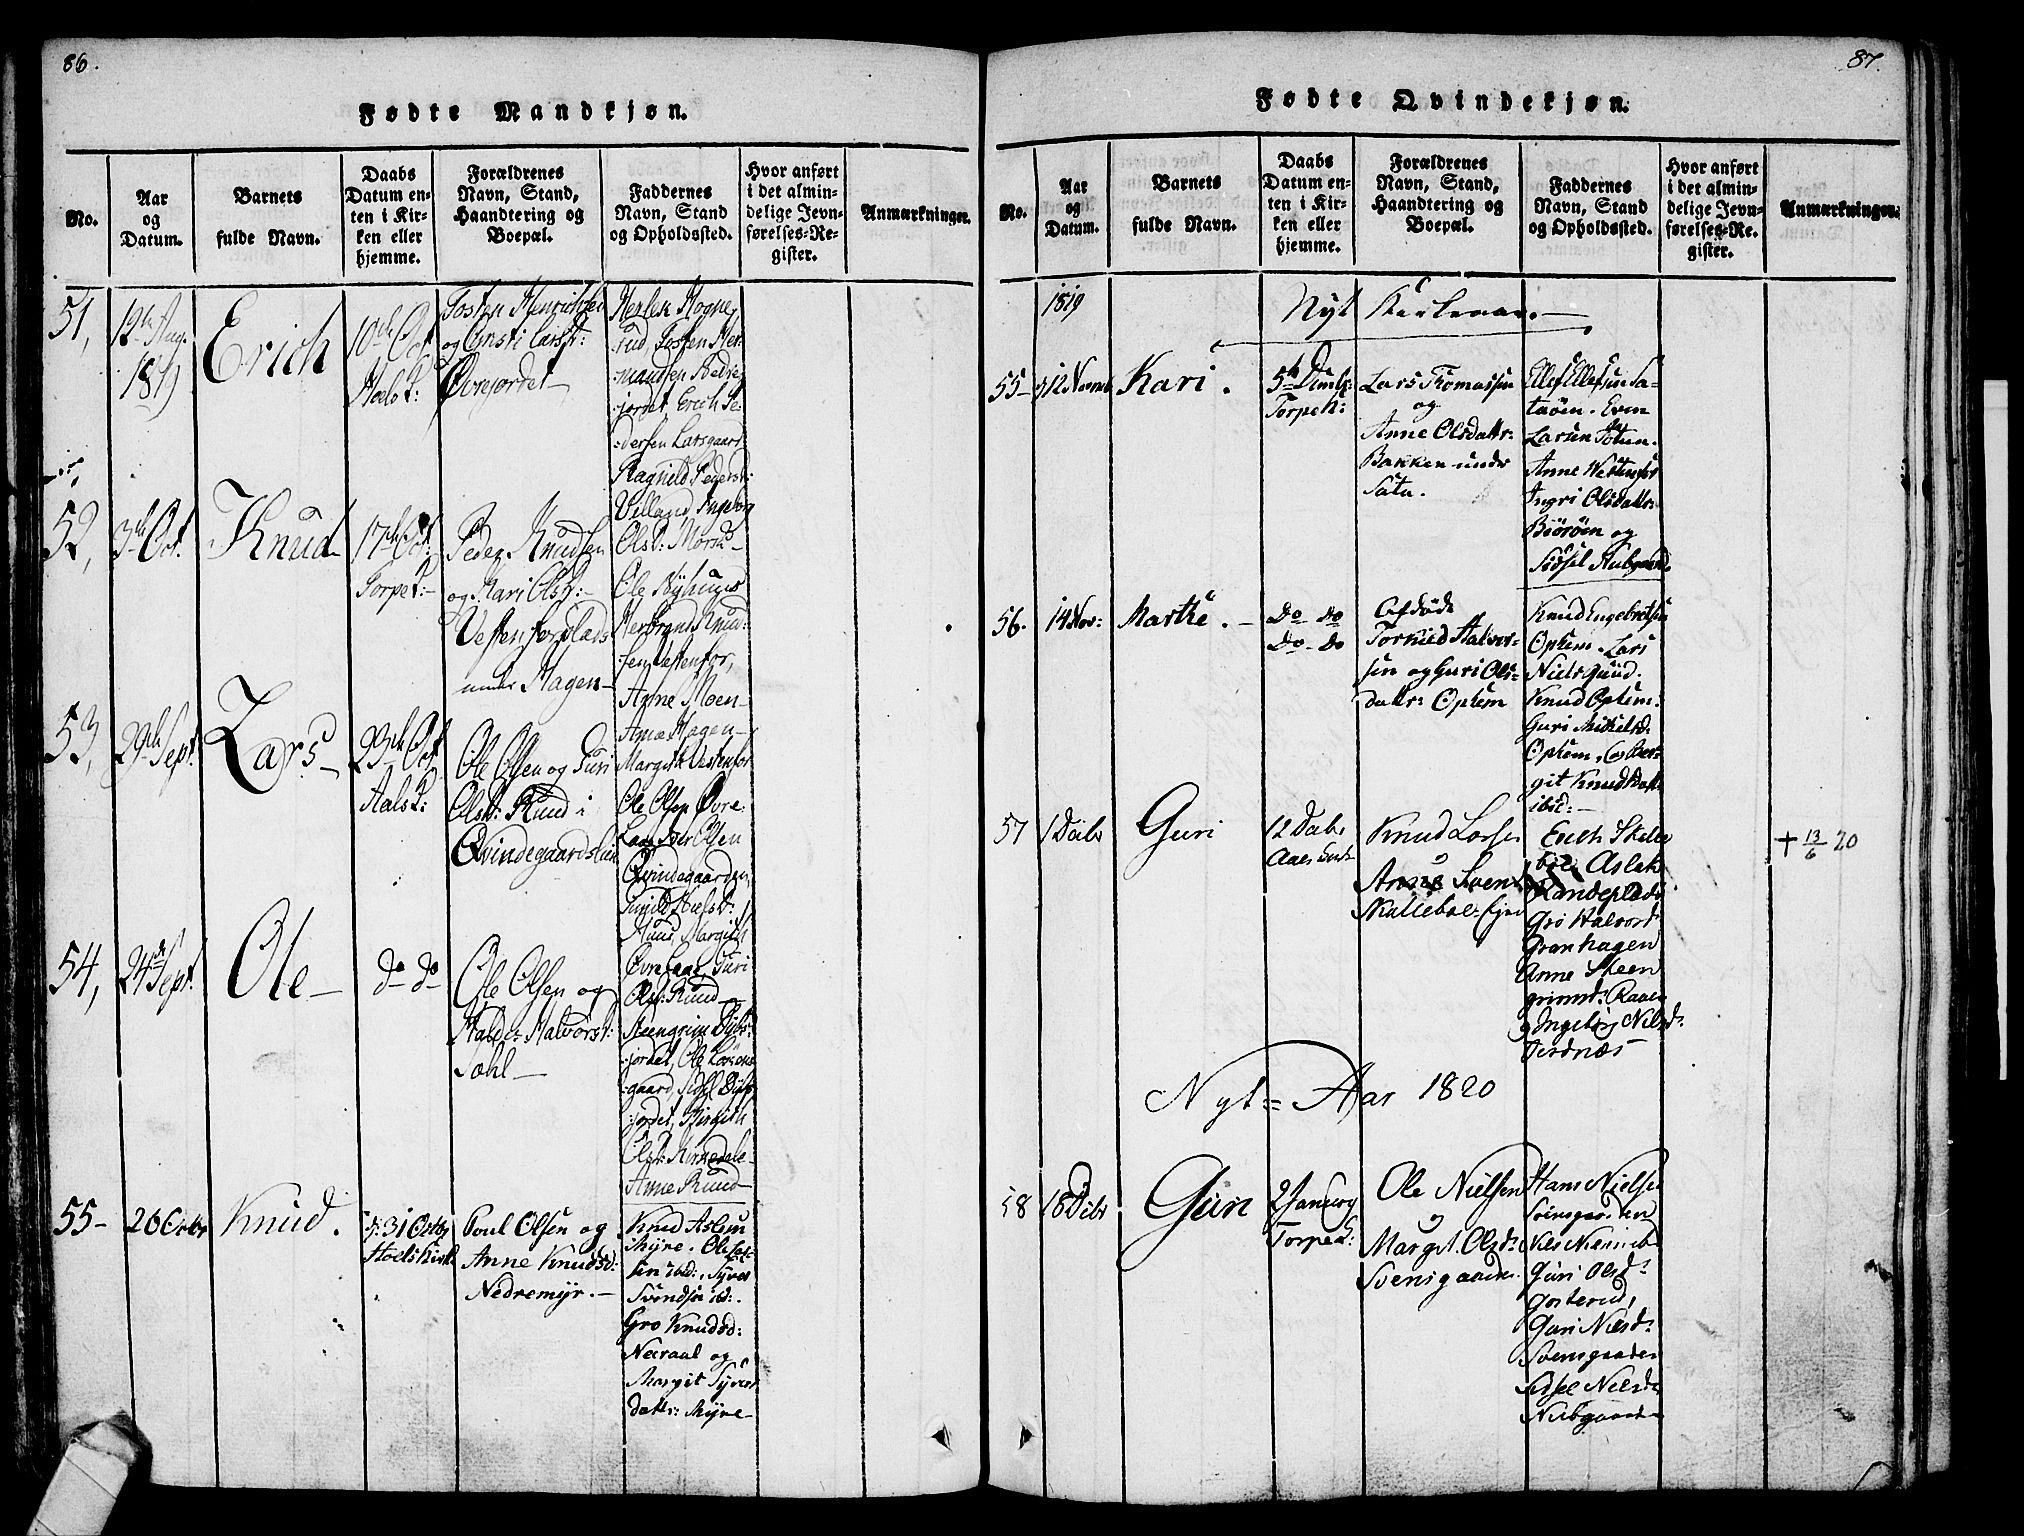 86.
Fødte Mandkjøn.
No.
Aar
og
Datum.
Barnets
fulde Navn.
Daabs
Datum en-
ten i Kir-
ken eller
hjemme.
Forældrenes
Navn, Stand,
Haandtering og
Boepæl.
Faddernes
Navn, Stand
og Opholdssted.
Hvor anført
i det almin-
delige Jevn-
førelses-Re-
gister.
Anmærkninger.
51,
12te Aug.
1819
Erich
10de Oct
Hoels K:
Tosten Henrichsen
og Christi Larsd:
Øvrejordet
Herlek Hogne-
rud, Tosten Her-
mandsen Nedre-
jordet, Erich Pe-
dersen Larsgaard
Ragnild Pedersd:
Villand, Ingebor
Olsd: Morud
52,
3de Oct.
Knud
17de Oct:
Torpe K:
Peder Knudsen
og Kari Olsd:
Vestenforplads
under Hagen
Ole Nyhuus
Herbrand Knud-
sen Vestenfor,
Anne Moen
Anne Hagen
Margith Vestenfor
53,
29de Sept.
Lars
23de Oct
Aals K:
Ole Olsen og Guri
Olsd: Ruud i
Qvindegaardslien
Ole Olsen Øvre-
Laae, Iver Olsen
Qvindegaarden,
Gunild Nielsd:
Ruud, Margith
Øvrelaae, Guri
Olsd: Ruud
54,
24de Sept.
Ole
do do
Ole Olsen og
Halvorsd:
Sohl
Steengrim
jordet, Ole
gaard, Sidsel
jordet, Birgith
Olsd:
Anne Ruud
55
26 Octbr
Knud.
d: 31 Octbr
Hoels Kirke
Poul Olsen og
Anne Knudsd:
Nedremyr.
Knud Aslesen
Myre. Ole
sen ibid:, Syver
Svendsen ibd:
Gro Knudsd:
Neraal og
Margit Syvers
datter: Myre
87.
Fødte Qvindekjøn.
No.
Aar
og
Datum.
Barnets
fulde Navn.
Daabs
Datum en-
ten i Kir-
ken eller
hjemme.
Forældrenes
Navn, Stand,
Haandtering og
Boepæl.
Faddernes
Navn, Stand
og Opholdssted.
Hvor anført
i det almin-
delige Jevn-
førelses-Re-
gister.
Anmærkninger.
1819
Nyt Kirkeaar.
55
d 12 Novemb
Kari.
5te Decembr:
Torpe K:
Lars Thomassen
og
Anne Olsdattr:
Bakken under
Sata.
Ellef Ellefsen Sa-
taøen. Even
Larsen
Anne Westenfor
Ingri Olsdattr:
Biørøen og
Sidsel
56.
14 Nov:
Marthe.
Do Do
Do Do
Afdøde
Torkild Halvor-
sen og Guri Ols-
dattr: Opheim
Knud Engebretsen
Ophem. Lars
Nielsgaard.
Knud Ophem.
Guri Mikelsd:
Ophem, og Ber-
git Knudsdatt
ibid:
57
1 Decbr
Guri
12 Decbr
Aals Kirk
Knud Larsen
Anne Svend
Skallebøl Eier
Erich Skalle
bøl Aslak
Sandeplads
Gro Halvord
Grønhagen
Anne Steen
grimsd: Raaen
Ingeborg Nilsd:
Tverdnæs
+ 13/6 20
Nyt Aar 1820
58
18 Decbr
Guri
2 Januarij
Torpe K:
Ole Nielsen
Margit Olsd:
Svensgaarden.
Hans Nielsen
Svensgaarden
Niels
Guri Olsd:
Golterud,
Guri Nielsd:
Svensgaarden
Sidsel Nielsd:
Nubgaarden